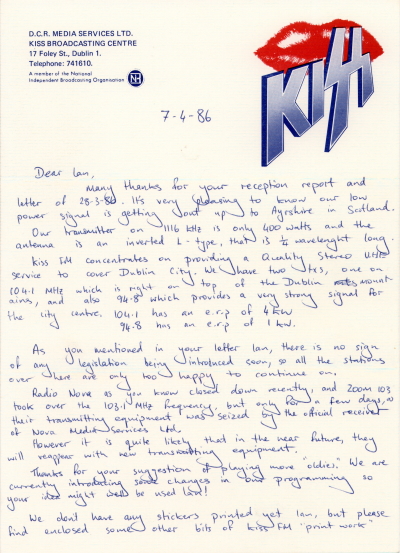 D.C.R. MEDIA SERVICES LTD.
KISS BROADCASTING CENTRE
17 Foley St., Dublin 1.
Telephone: 741610.
A member of the National
Independent Broadcasting Organisation
KISS
7-4-86
Dear Ian,
Many thanks for your reception report and
letter of 28-3-86. It's very pleasing to know our low
power signal is getting out up to Ayrshire in Scotland.
Our transmitter on 1116 kHz is only 400 watts and the
antenna is an inverted L-type, that is ¼ wavelenght long.
Kiss FM concentrates on providing a Quality Stereo
service to cover Dublin City. We have two txs, one on
104.1 MHz which is right on top of the Dublin mount
ains, and also 94.8 which provides a very strong signal for
the city centre. 104.1 has an e.r.p of 4 kw
94.8 has an e.r.p of 1 kw.
As you mentioned in your letter Ian, there is no sign
of any legislation being introduced soon, so all the stations
over here are only too happy to continue on.
Radio Nova as you know closed down recently, and Zoom 103
took over the 103.1 MHz frequency, but only for a few days, as
their transmitting equipment was seized by the official receiver
of Nova Media Services Ltd.
However it is quite likely that in the near future, they
will reappear with new transmitting equipment.
Thanks for your suggestion of playing more "oldies". We are
currently introducing some changes in our programming so
your idea might well be used Ian!
We don't have any stickers printed yet Ian, but please
find enclosed some other bits of Kiss FM "print work"